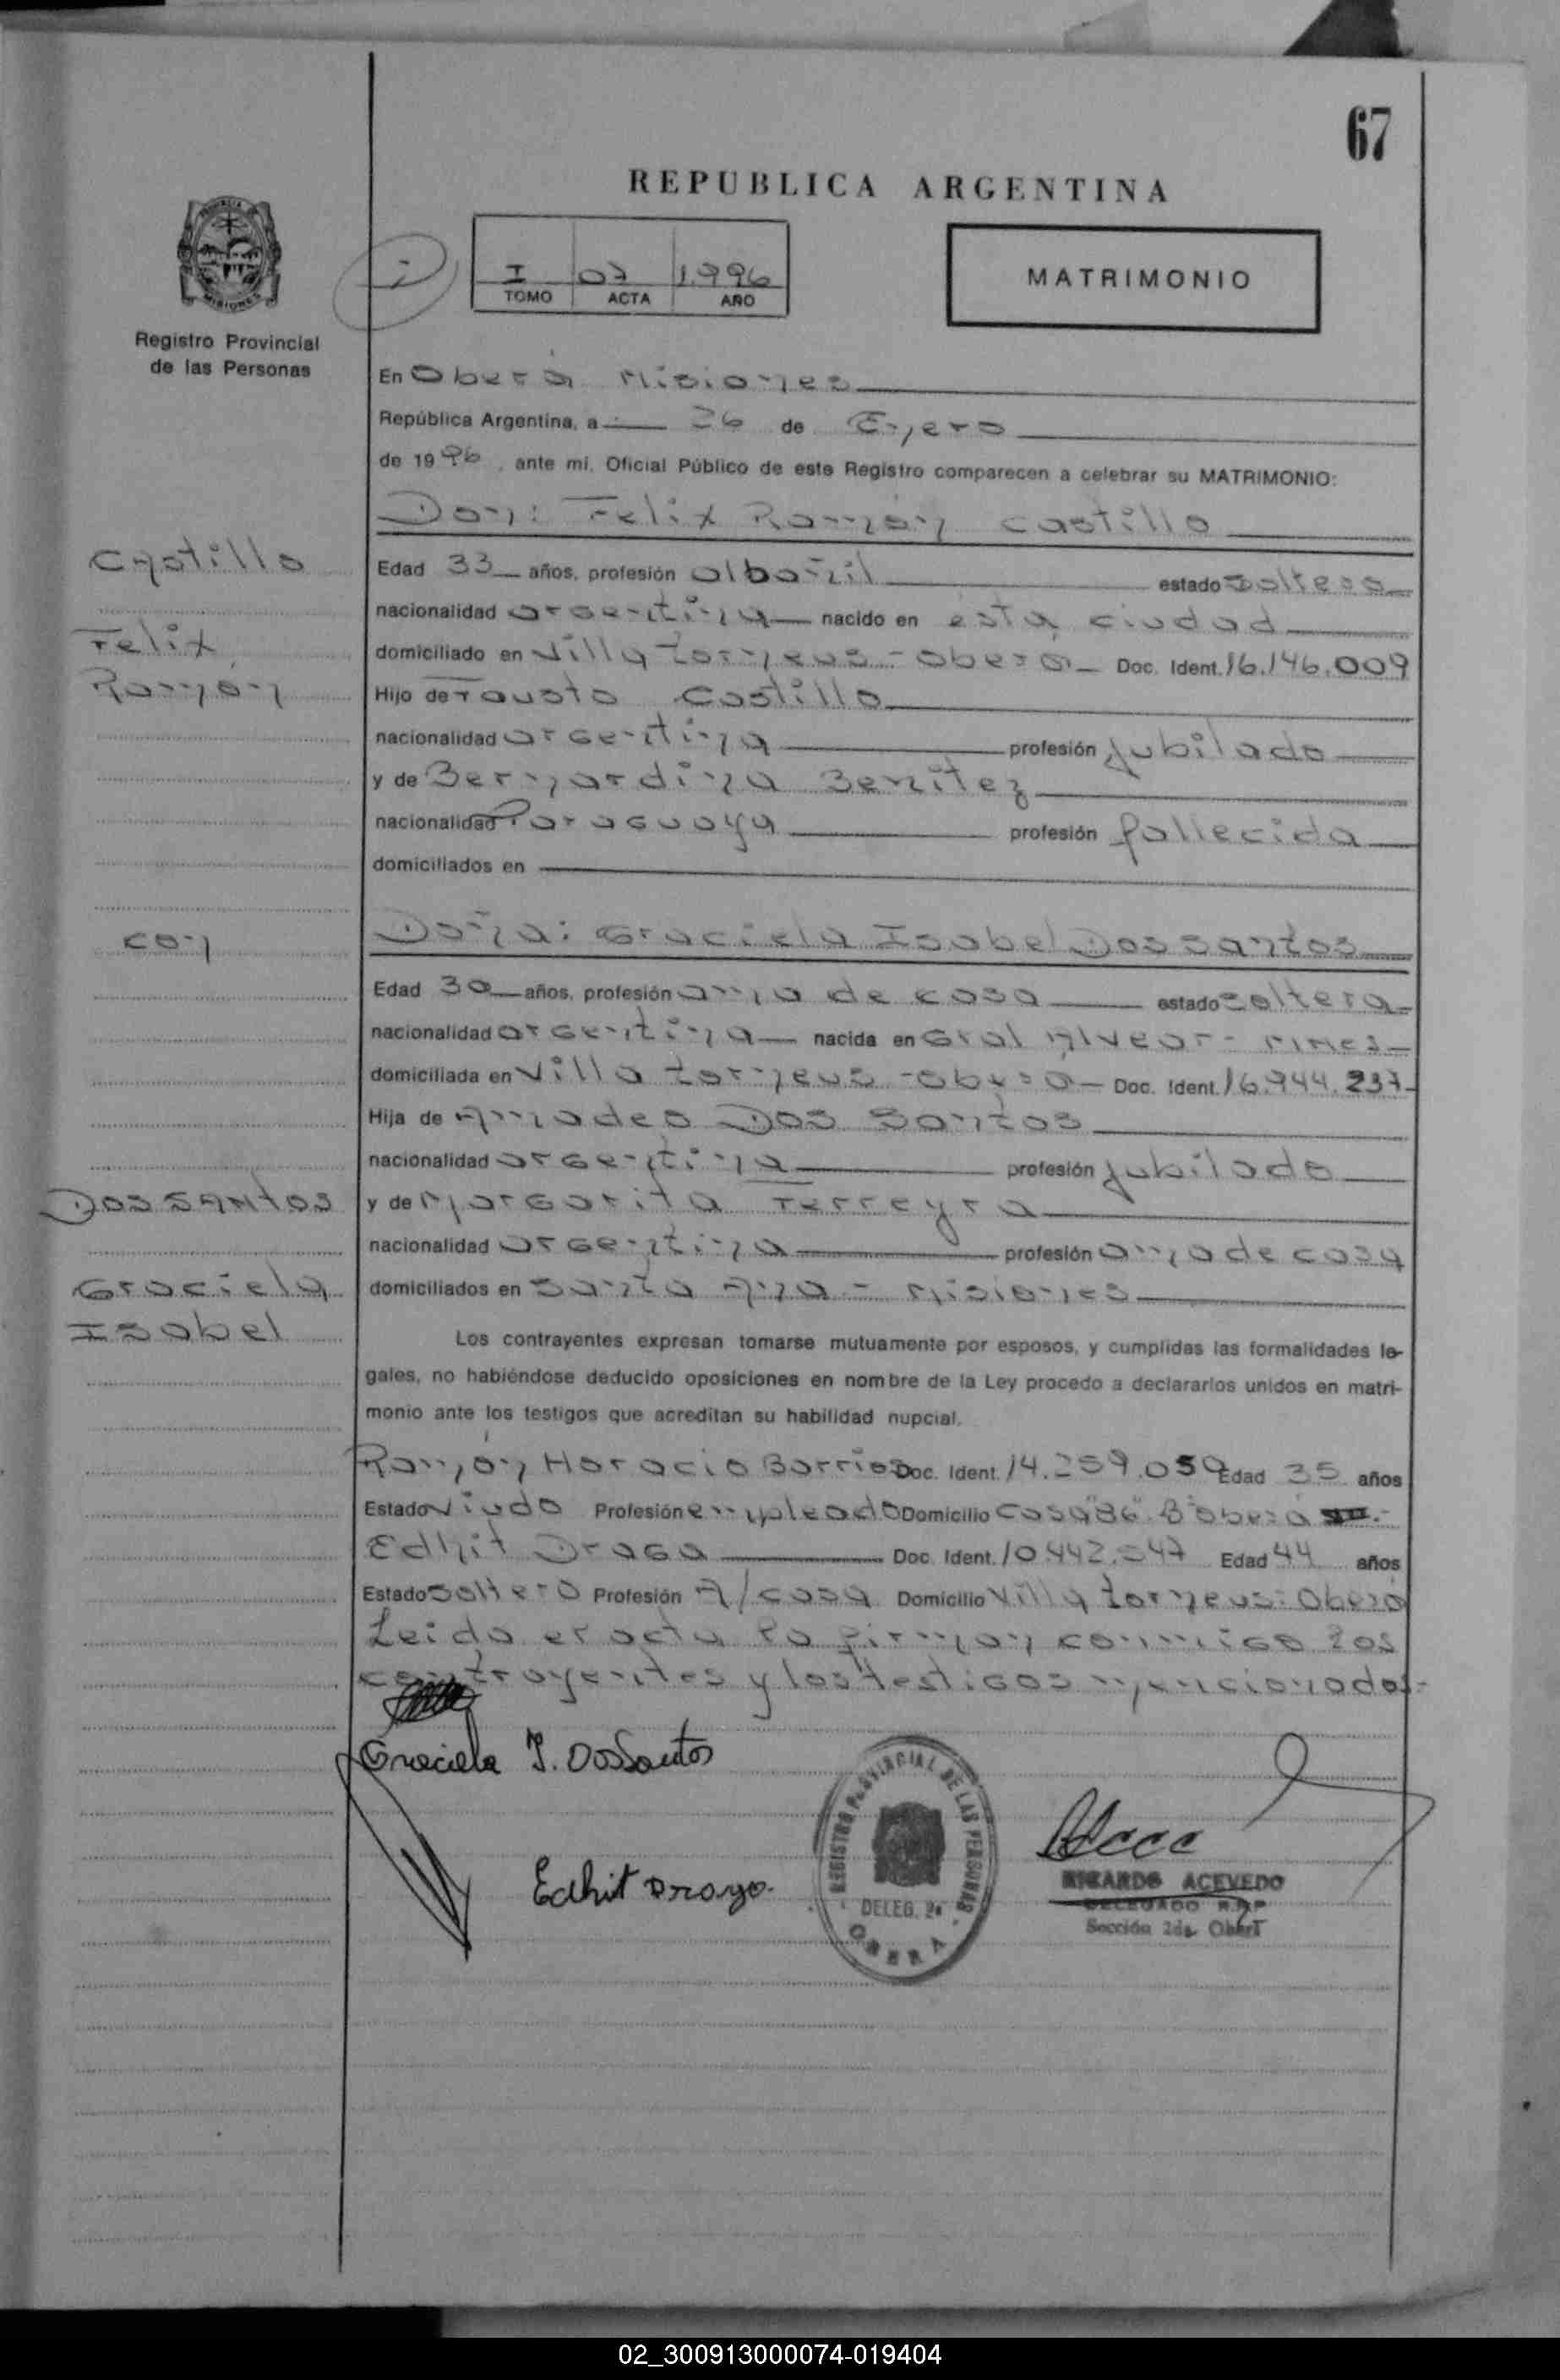 67
REPUBLICA ARGENTINA
I 07 1.996
TOMO ACTA AÑO
MATRIMONIO
Registro Provincial
de las Personas
En Oberá Misiones
República Argentina, a 26 de Enero
de 1996, ante mí, Oficial Público de este Registro comparecen a celebrar su MATRIMONIO:
Don: Felix Ramón Castillo
Castillo
Felix
Ramón
Edad 33 años, profesión albañil estado soltero
nacionalidad argentina nacido en ésta ciudad
domiciliado en Villa torneus - Obera Doc. Ident. 16.146.009
Hijo de Fausto Castillo
nacionalidad argentina profesión jubilado
y de Bernardina Benítez
nacionalidad Paraguaya profesión fallecida
domiciliados en
con
Doña: Graciela Isabel Dos santos
Edad 30 años, profesión ama de casa estado soltera
nacionalidad argentina nacida en Gral Alvear -
domiciliada en Villa torneus - obera Doc. Ident. 16.944.237
Hija de Amadeo Dos Santos
nacionalidad argentina profesión jubilado
Dos santos
Graciela
Isabel
y de Margarita Ferreyra
nacionalidad argentina profesión ama de casa
domiciliados en Santa Ana - Misiones
Los contrayentes expresan tomarse mutuamente por esposos, y cumplidas las formalidades le-
gales, no habiéndose deducido oposiciones en nombre de la Ley procedo a declararlos unidos en matri-
monio ante los testigos que acreditan su habilidad nupcial.
Ramón Horacio Barrios Doc. Ident. 14.259.059 Edad 35 años
Estado viudo Profesión empleado Domicilio casa 86 Bº obera
Edhit Draga Doc. Ident. 10.442.547 Edad 44 años
Estado soltero Profesión A/casa Domicilio Villa torneus: Oberá
Leida el acta la firman conmigo los
contrayentes y los testigos mencionados.-
Graciela I. DosSantos
Edhit Drago.
REGISTRO PROVINCIAL DE LAS PERSONAS
DELEG. 2a
OBERA
RICARDO ACEVEDO
DELEGADO R.P.P
Sección 2da. Oberá
02_300913000074-019404